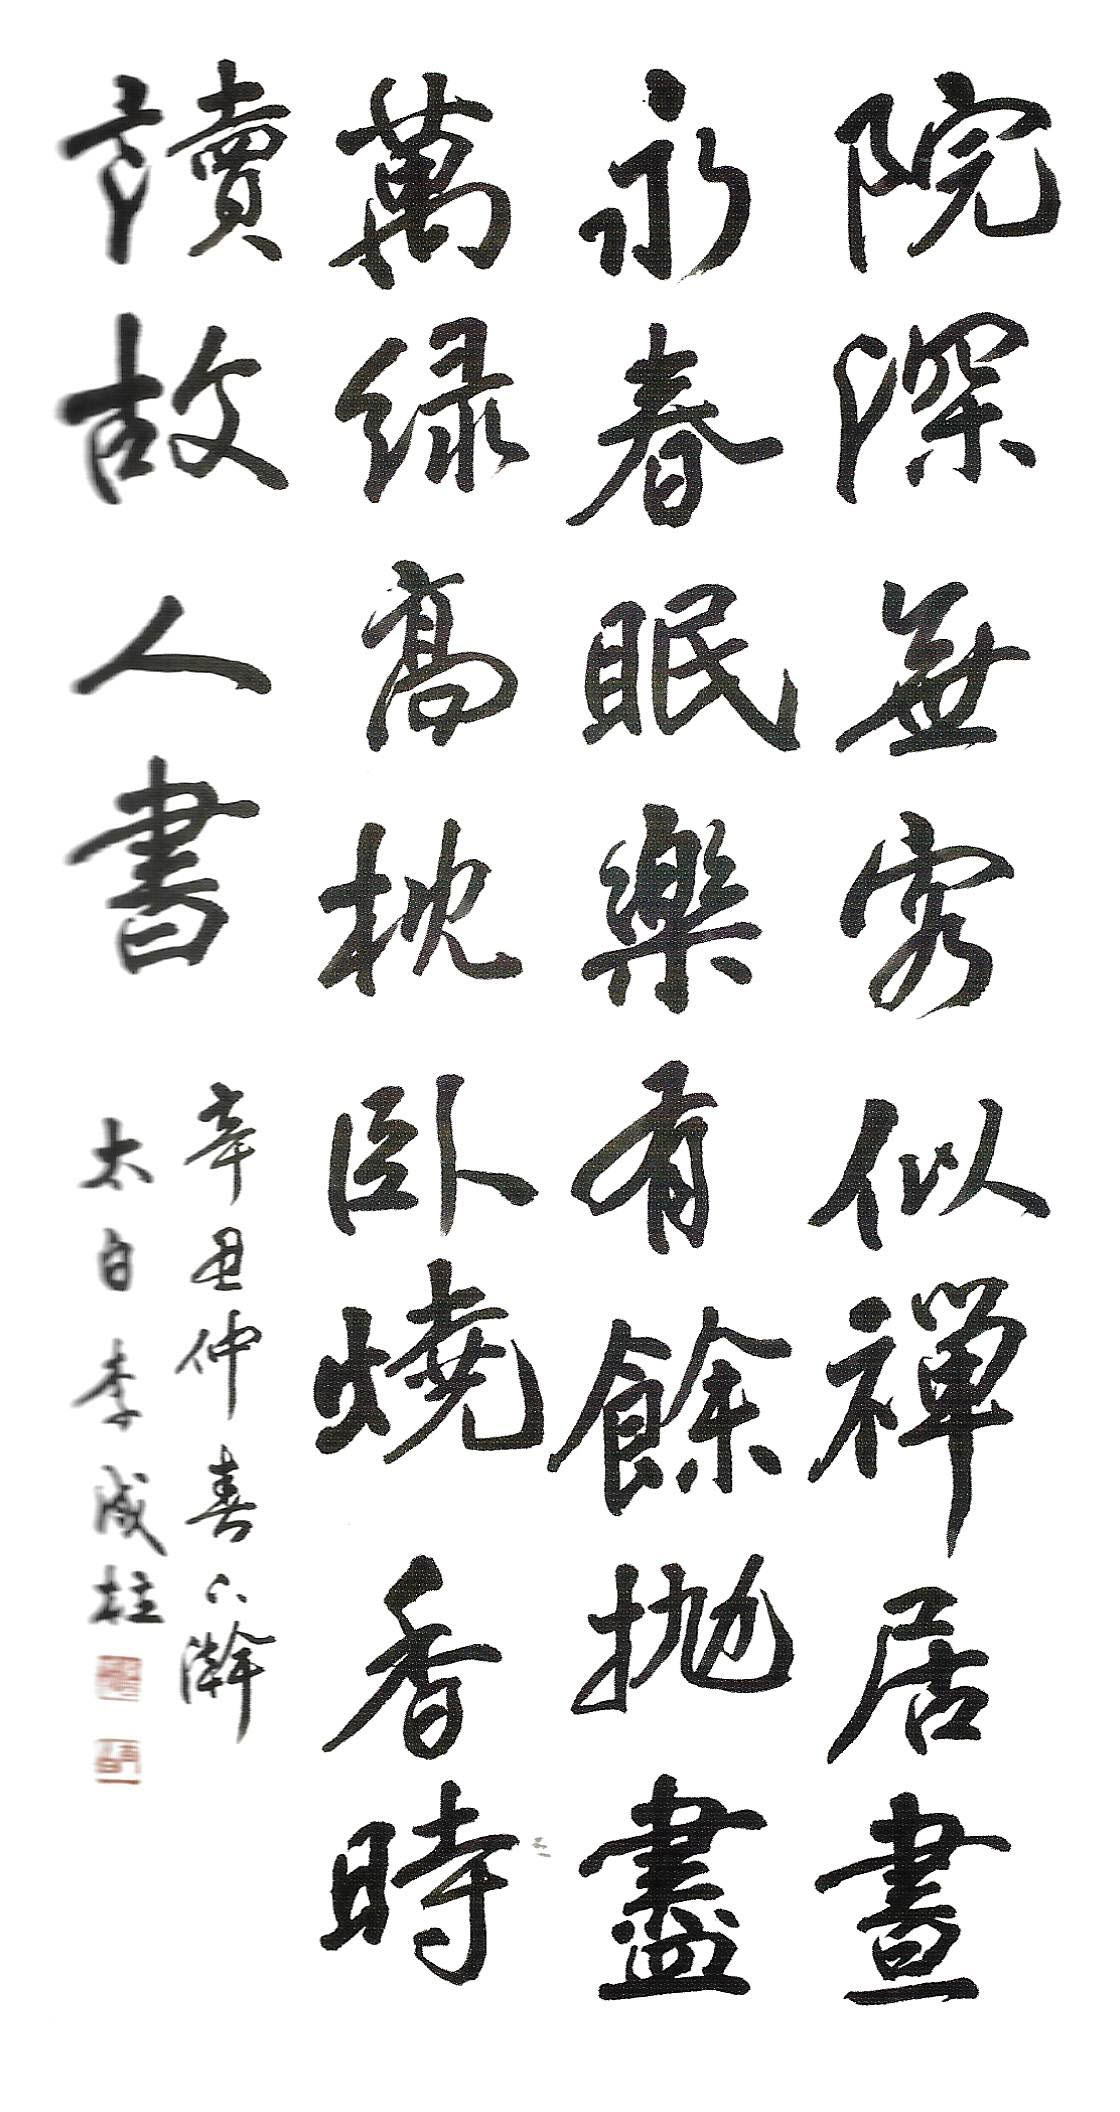 院深無客似禪居晝
永春眠樂有餘抛盡
萬緣高枕卧燒香時
讀故人書
辛丑仲春下澣
太白李成柱